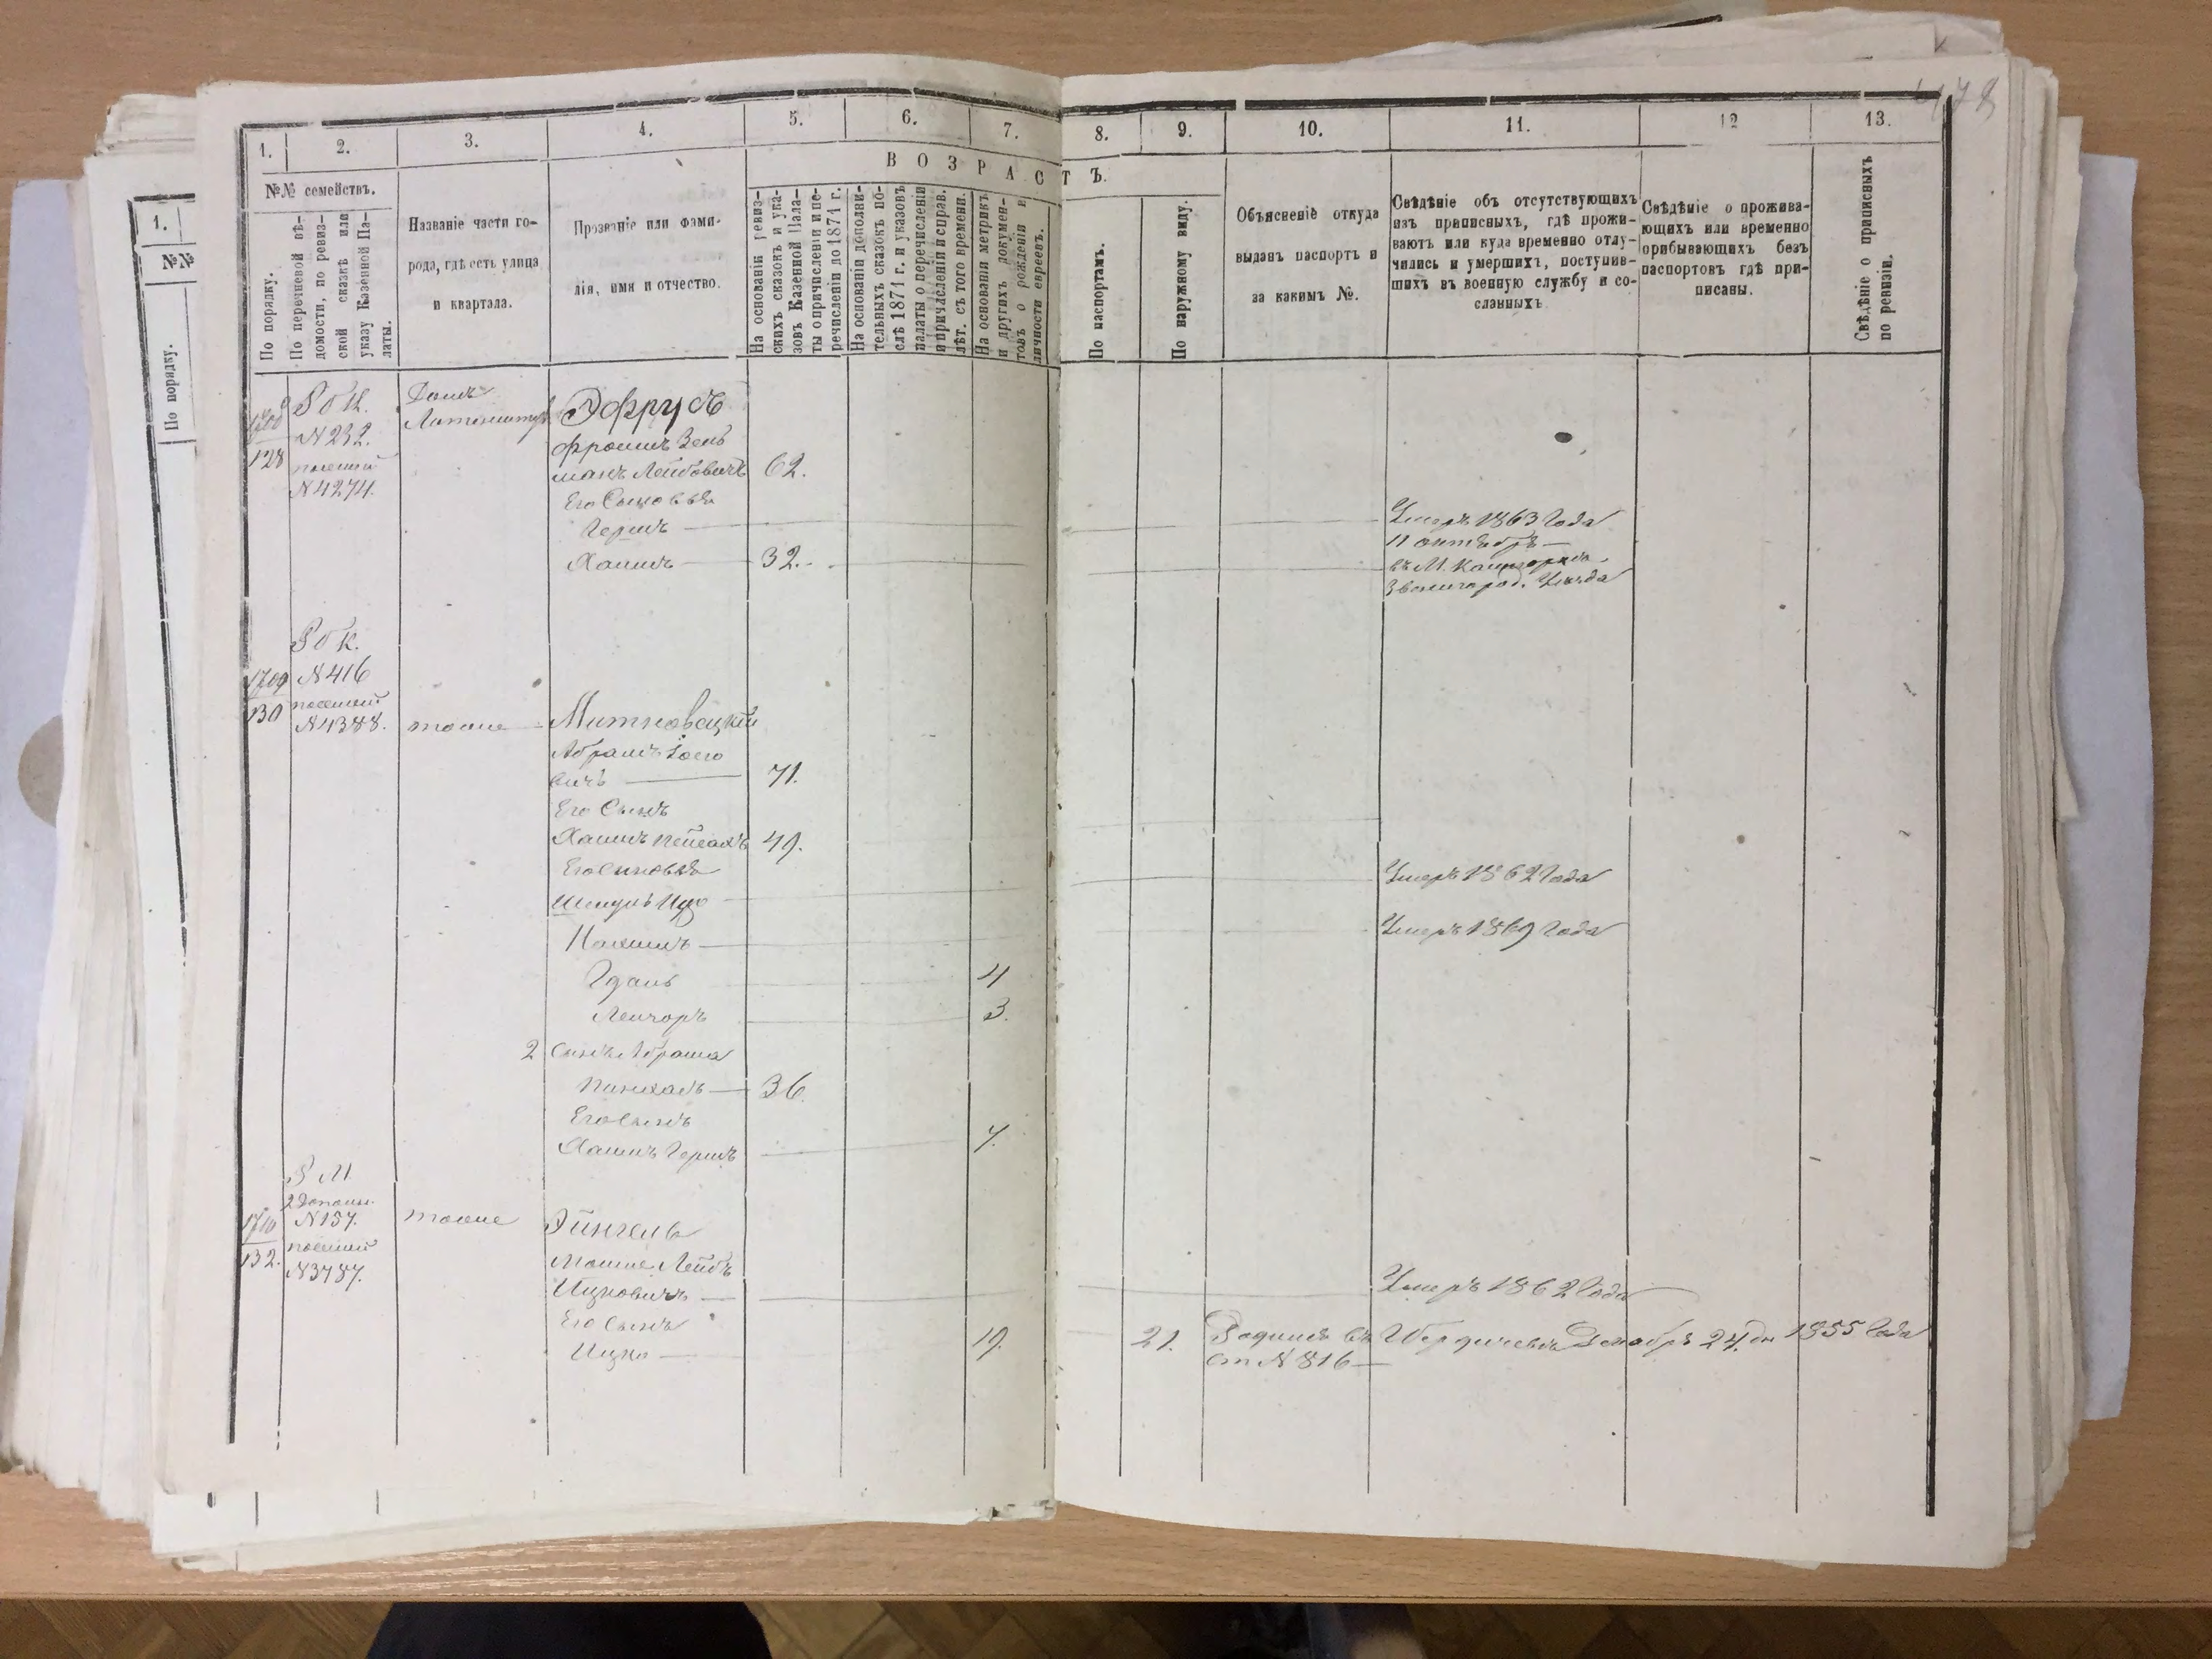 1.
№№
По порядку.
1. 2. 3. 4. 5. 6. 7. 8. 9. 10. 11. 12 13.
ВОЗРАСТЪ.
№№ семействъ.
По порядку.
По перечневой вѣ-
домости, по ревиз-
ской сказкѣ или
указу Казенной Па-
латы.
Названіе части го-
рода, гдѣ есть улица
и квартала.
Прозваніе или фами-
лія, имя и отчество.
На основаніи ревиз-
скихъ сказокъ и ука-
зовъ Казенной Пала-
ты о причисленіи и пе-
речисленіи до 1871 г.
На основаніи дополни-
тельныхъ сказокъ по-
слѣ 1871 г. и указовъ
палаты о перечисленіи
и причисленіи и справ.
лѣт. съ того времени.
На основаніи метрикъ
и другихъ докумен-
товъ о рожденіи и
личности евреевъ.
По паспортамъ.
По наружному виду.
Объясненіе откуда
выданъ паспортъ и
за какимъ №.
Свѣдѣніе объ отсутствующихъ
изъ приписныхъ, гдѣ прожи-
ваютъ или куда временно отлу-
чились и умершихъ, поступив-
шихъ въ военную службу и со-
сланныхъ
Свѣдѣніе о прожива-
ющихъ или временно
прибывающихъ безъ
паспортовъ гдѣ при-
писаны.
Свѣдѣніе о приписныхъ
по ревизіи.
128
N 232.
N 4274.
Домъ
Эфрусъ
Фроимъ Зель
манъ Лейбовичъ 62.
Его Сыновья
Гершъ Умеръ 1863 Года
11 октября
Хаимъ 32. въ М.
Звенигород. Уѣзда
1709
130
N 416
N 4388.
тоже
Абрамъ
вичъ 71.
Его Сынъ
Хаимъ Пейсахъ 49.
Его сыновья Умеръ 1862 Года
Шмуль Ицко
Умеръ 1869 Года
4
3.
2 Сынъ Абрама
Пинхасъ 36.
Его Сынъ
Хаимъ Гершъ 7.
1710
132.
N 157.
N 3787.
тоже
Эйнгель
Мошке Лейбъ
Ицковичъ Умеръ 1862 Года
Его Сынъ
Ицко 19. 21. Родился въ Бердичевѣ Декабря 24. дн 1855 Года
N 816